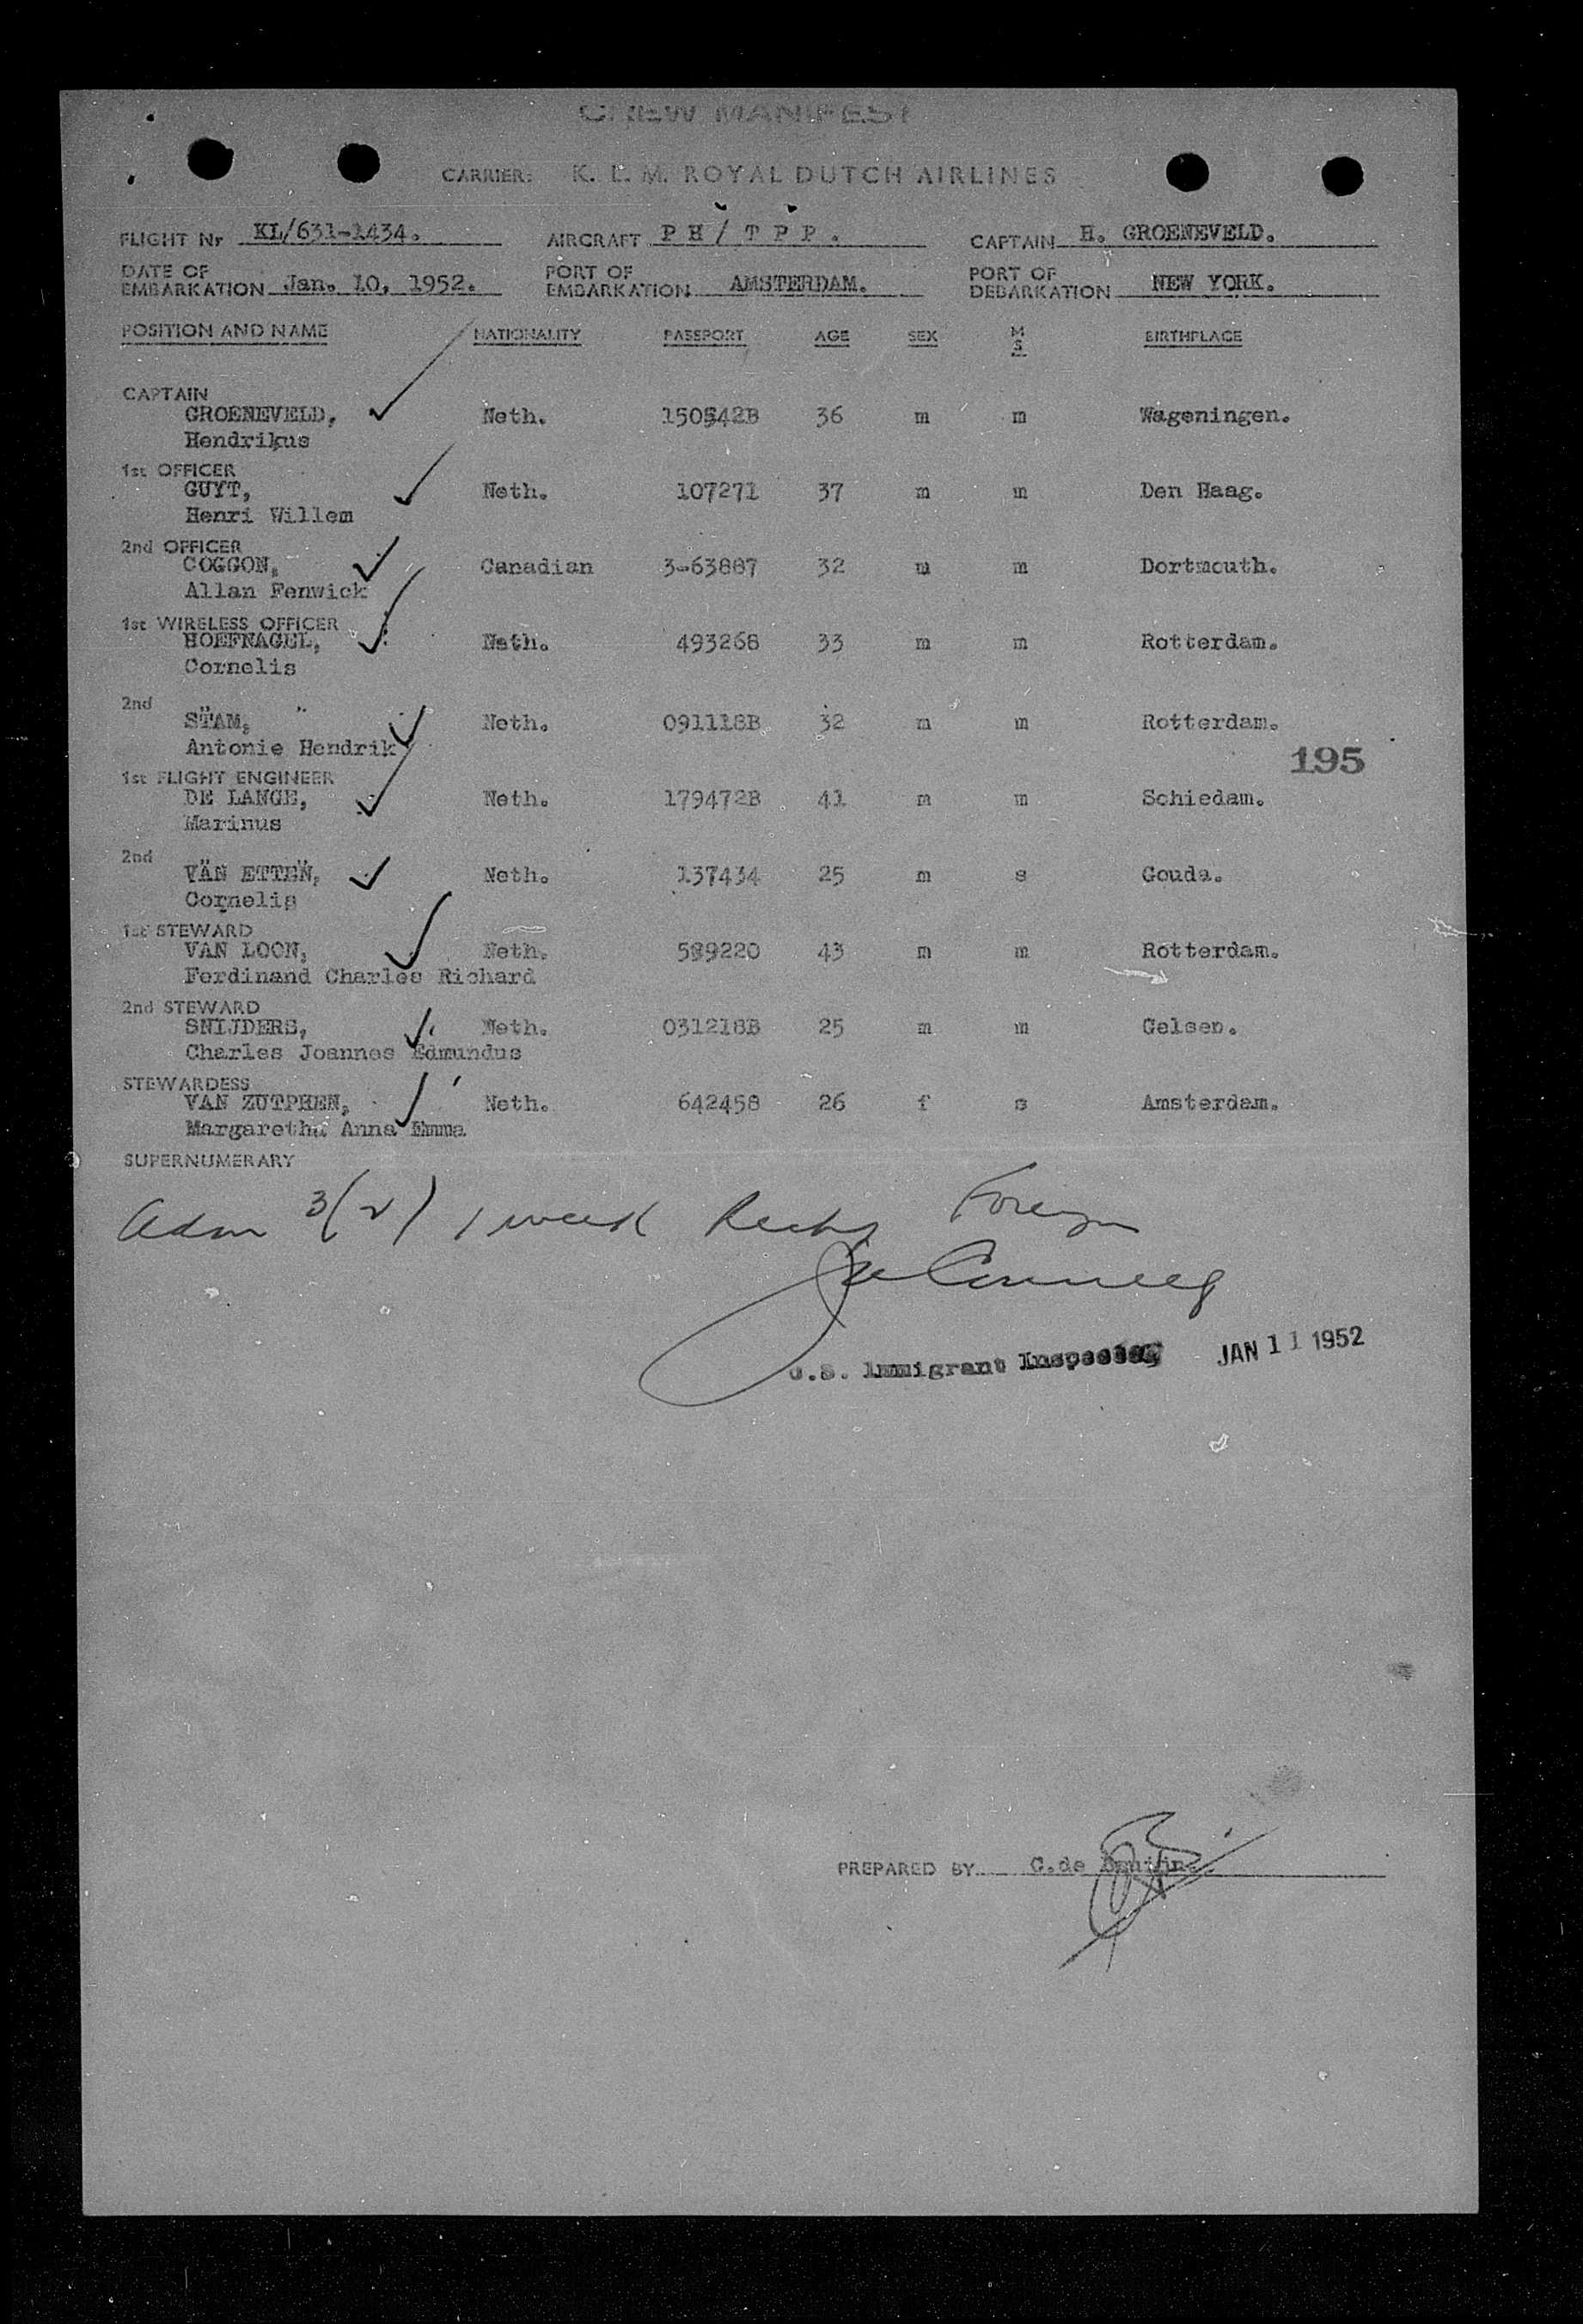 CREW MANIFEST
CARRIER: K. L. M. ROYAL DUTCH AIRLINES
FLIGHT Nr KL/631-1434. AIRCRAFT P H / T P P . CAPTAIN H. GROENEVELD.
DATE OF EMBARKATION Jan. 10, 1952. PORT OF EMBARKATION AMSTERDAM. PORT OF DEBARKATION NEW YORK.
POSITION AND NAME NATIONALITY PASSPORT AGE SEX M S BIRTHPLACE
CAPTAIN
GROENEVELD, Neth. 150542B 36 m m Wageningen.
Hendrikus
1st OFFICER
GUYT, Neth. 107271 37 m m Den Haag.
Henri Willem
2nd OFFICER
COGGON, Canadian 3-63887 32 m m Dortmouth.
Allan Fenwick
1st WIRELESS OFFICER
HOEFNAGEL, Neth. 493268 33 m m Rotterdam.
Cornelis
2nd " "
STAM, Neth. 091118B 32 m m Rotterdam.
Antonie Hendrik
195
1st FLIGHT ENGINEER
DE LANGE, Neth. 179472B 41 m m Schiedam.
Marinus
2nd " "
VAN ETTEN, Neth. 137434 25 m s Gouda.
Cornelis
1st STEWARD
VAN LOON, Neth. 589220 43 m m Rotterdam.
Ferdinand Charles Richard
2nd STEWARD
SNIJDERS, Neth. 031218B 25 m m Gelsen.
Charles Joannes Edmundus
STEWARDESS
VAN ZUTPHEN, Neth. 642458 26 f s Amsterdam.
Margaretha Anna Emma
SUPERNUMERARY
Adm 3(2) 1 week Foreign
U.S. Immigrant Inspector JAN 11 1952
PREPARED BY C.de